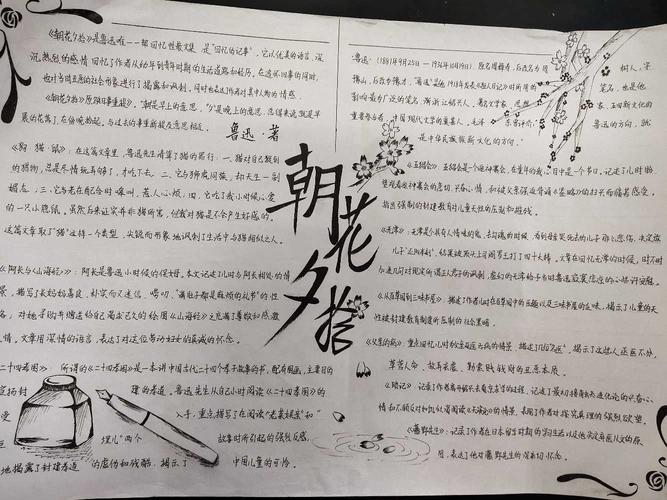 《朝花夕拾》是鲁迅唯一一部回忆性散文集,是"回忆的记事",它以优美的语言,深
沉、热烈的感情回忆了作者从幼年到青年时期的生活道路和经历,在追怀旧事的同时,
也对当时丑恶的社会形象进行了揭露和讽刺,同时也表达了作者对其中人物的情感。
《朝花夕拾》原题《旧事重提》,"朝是早上的意思,"夕"是晚上的意思,总得来说就是早
晨的花落了,在傍晚拾起,与过去的事重新提及意思相近。
鲁迅·著
《狗·猫·鼠》:在这篇文章里,鲁迅先生清算了猫的罪行:一、猫对自己捉到
的猎物,总是尽情玩弄够了,才吃下去;二、它与狮虎同族,却天生一副
媚态;三、它总在配合时嗥叫,惹人心烦;四、它吃了我小时候心爱
的一只小隐鼠。虽然后来证实并非猫所害,但我对猫是不会产生好感的。
这篇文章取了"猫"这样一个类型,尖锐而形象地讽刺了生活中与猫相似之人。
《阿长与《山海经》》:阿长是鲁迅小时候的保姆。本文记述了儿时与阿长相处的情
景,描写了长妈妈善良、朴实而又迷信、唠叨、"满肚子都是麻烦的礼节"的性
格,对她寻购并赠送给自己渴求已久的绘图《山海经》充满了尊敬和感激
之情,文章用深情的语言,表达了对这位劳动妇女的真诚的怀念。
二十四孝图》:所谓的《二十四孝图》是一本讲中国古代二十四个孝子故事的书,配有图画,主要目的
宣扬封建的孝道。鲁迅先生从自己小时阅读《二十四孝图》的
受入手,重点描写了在阅读"老莱娱亲"和"
埋儿"两个故事时所引起的强烈反感,
地揭露了封建孝道的虚伪和残酷,揭示了中国儿童的可怜。
朝花夕拾
鲁迅:(1881年9月25日-1936年10月19日),原名周樟寿,后改名为周树人,字
豫山,后改为豫才,"鲁迅"是他1918年发表《狂人日记》时所用的笔名,也是他
影响最为广泛的笔名,浙江绍兴人。著名文学家、思想家、五四新文化的
重要参与者,中国现代文学的奠基人。毛泽东曾评价:鲁迅的方向,就
是中华民族新文化的方向。
《五猖会》:五猖会是一个迎神赛会,在童年的我心目中是一个节日,记述了儿时盼
望观看迎神赛会的急切、兴奋心情,和被父亲强迫背诵《鉴略》的扫兴而痛苦感受。
指出强制的封建教育对儿童天性的压制和摧残。
《无常》:无常是个具有人情味的鬼,去勾魂的时候,看到母亲哭死去的儿子那么悲伤,决定放
儿子"还阳半刻",结果被顶头上司阎罗王打了四十大棒。文章在回忆无常的时候,时不时
加进几句对现实所谓正人君子的讽刺,虚幻的无常给予当时鲁迅寂寞悲凉的心些许安慰。
《从百草园到三味书屋》:描述了作者儿时在百草园中的乐趣以及三味书屋的乏味,揭示了儿童的天
性被封建教育制度所压制的社会黑暗。
《父亲的病》:重点回忆儿时为父亲延医治病的情景,描述了几位"名医",揭示了这些人巫医不分、
草菅人命、故弄玄虚、勒索钱财的丑恶本质。
《琐记》:记录了作者离开绍兴去南京求学的过程,记述了最初接触新形进化论的兴奋心
情和不顾反对如饥似渴阅读《天演论》的情景,表现了作者对探求真理的强烈欲望。
《藤野先生》:记录了作者在日本留学时期的学习生活以及他决定弃医从文的原
因,表达了他对藤野先生的深切怀念。